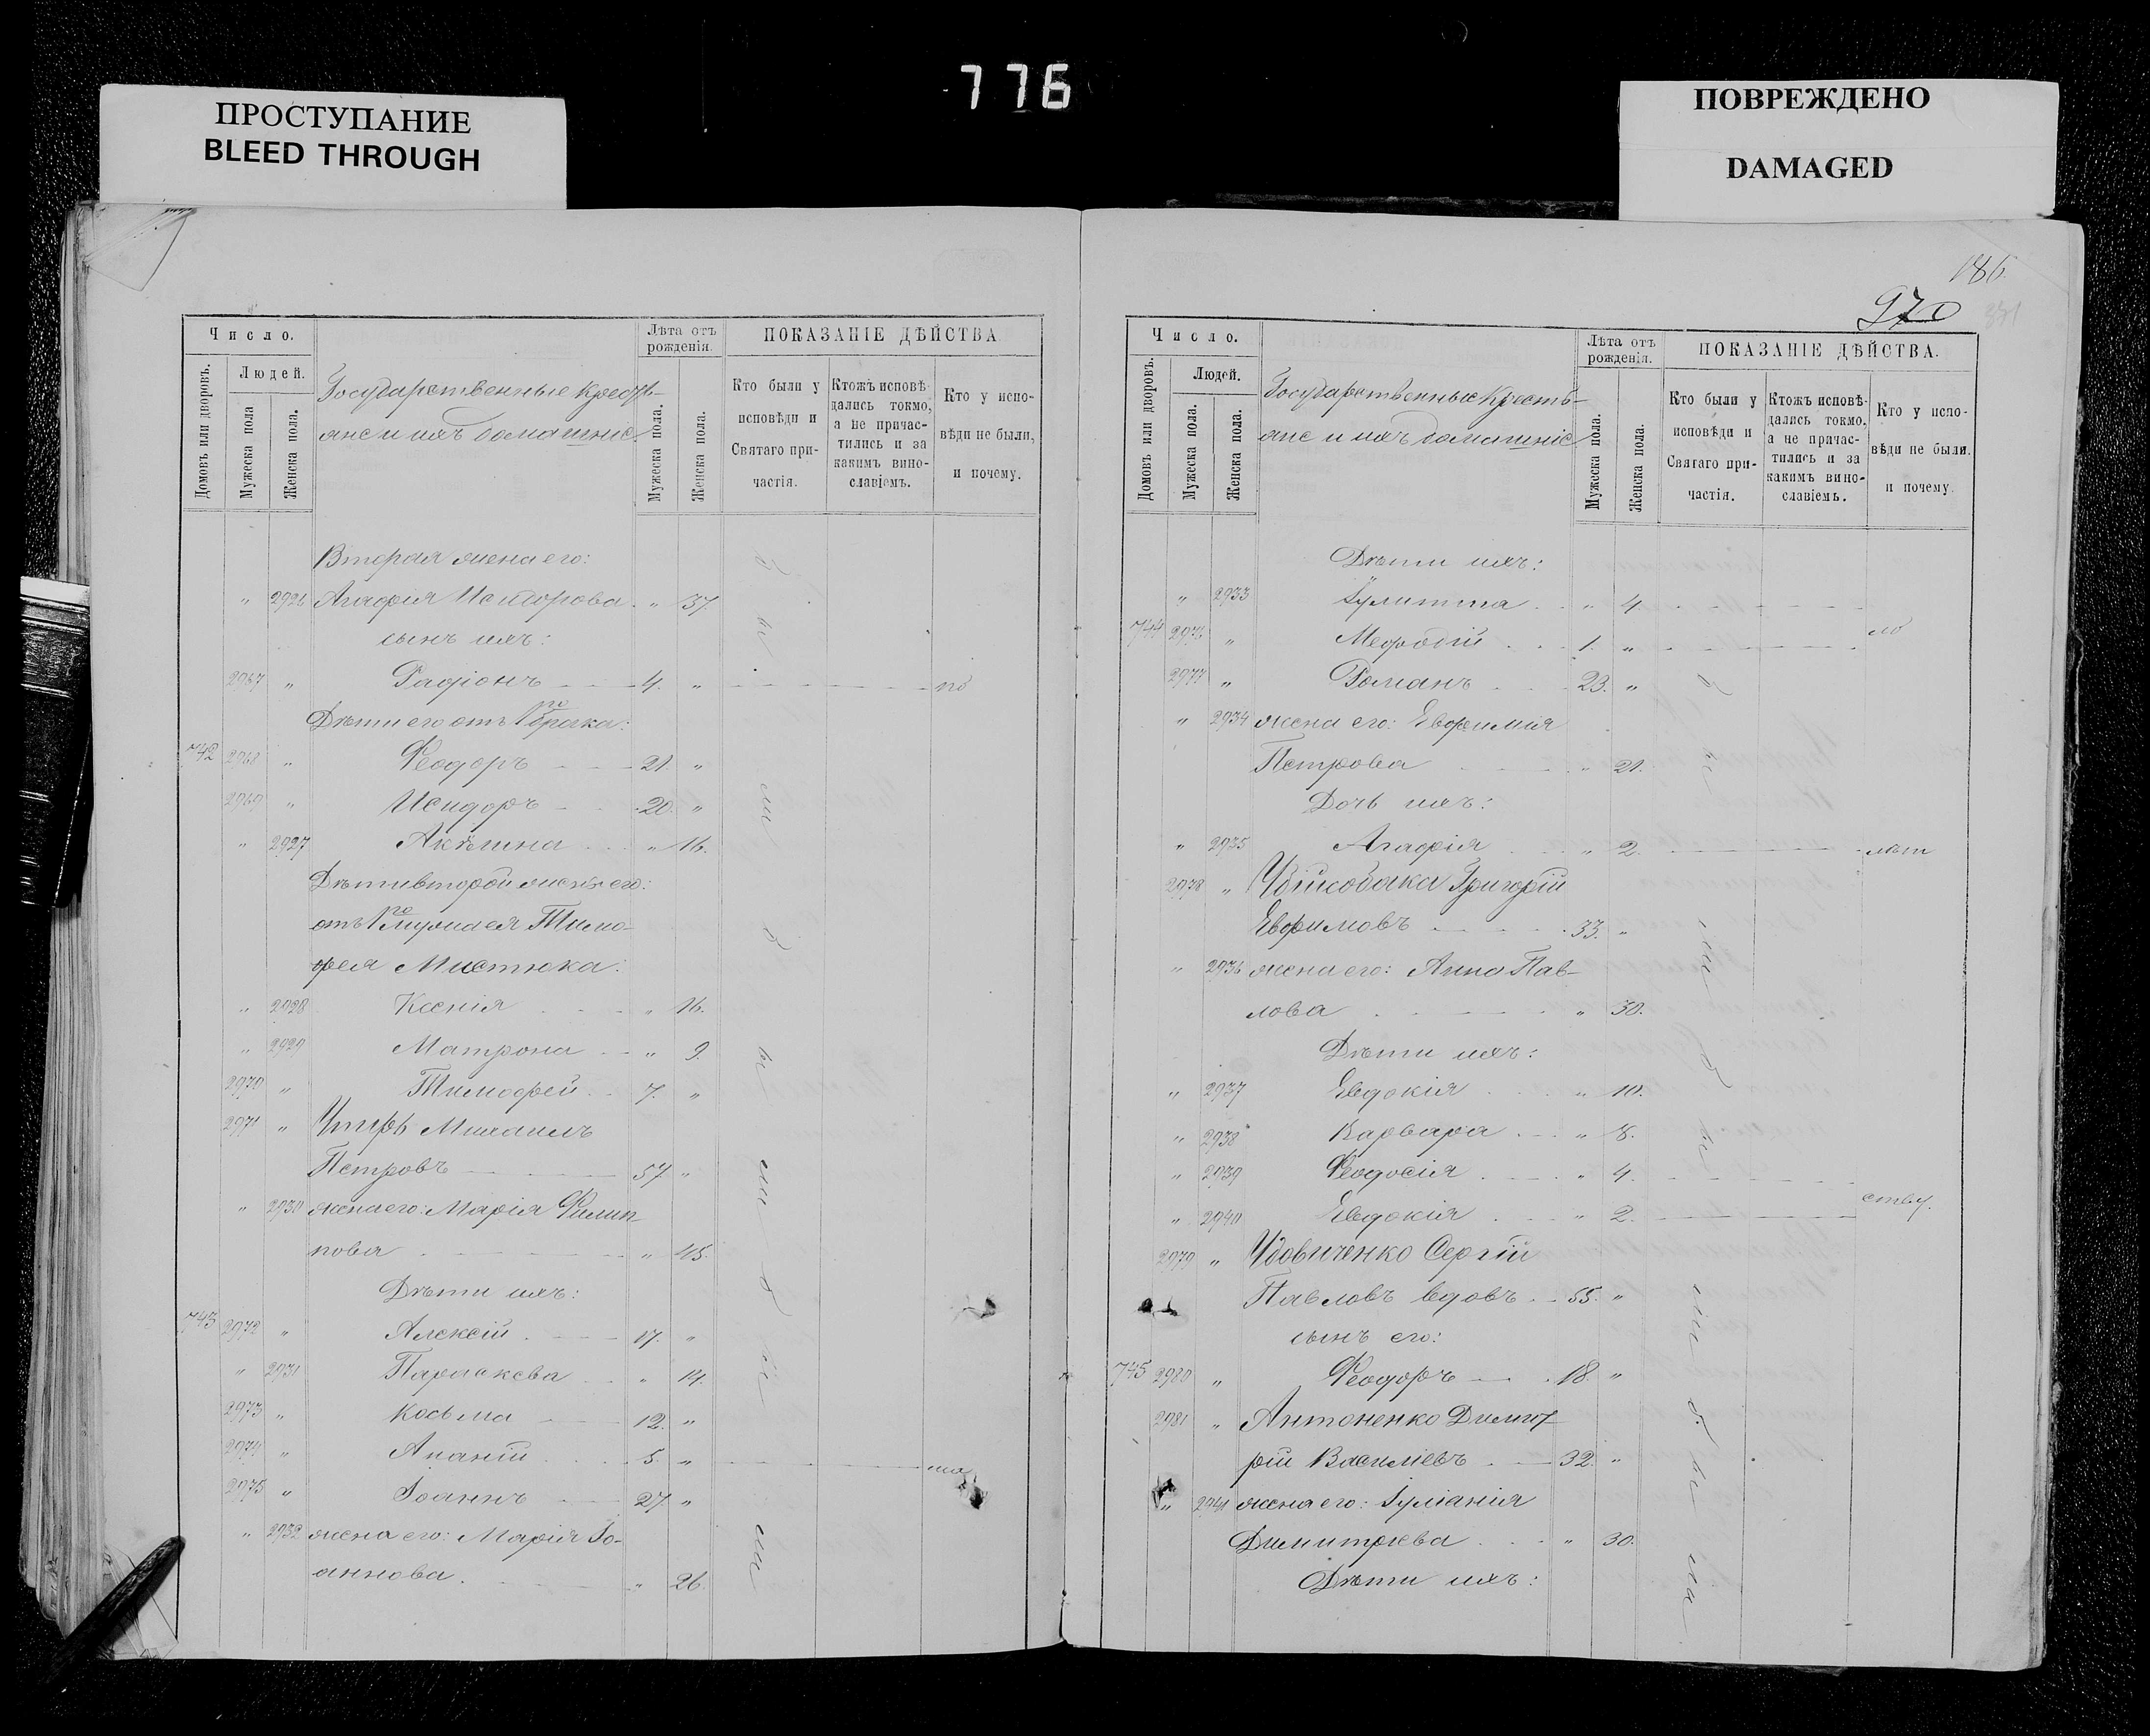 776
ПРОСТУПАНИЕ
BLEED THROUGH
ПОВРЕЖДЕНО
DAMAGED
Число.
Домовъ или дворовъ.
Людей.
Мужеска пола
Женска пола.
Государственные кресть-
яне и ихъ домашніе.
Лѣта отъ рожденія.
Мужеска пола.
Женска пола.
ПОКАЗАНІЕ ДѢЙСТВА
Кто были у исповѣди и Святаго при-частія.
Ктожъ исповѣ-дались токмо, а не причас-тились и за какимъ вино-славіемъ.
Кто у испо-вѣди не были, и почему.
Вторая жена его:
" 2926 Агафія Исидорова " 37.
сынъ ихъ:
2967 " Радіонъ 4. " по
Дѣти его отъ 1го брака:
742 2968 " Ѳеодоръ 21. "
2969 " Исидоръ 20. "
" 2927 Акѵлина " 16.
Дѣти второй жены его:
отъ 1го мужа ея Тимо-
фея Мистюка:
" 2928 Ксенія " 16.
" 2929 Матрона " 9.
2970 " Тимофей 7. "
2971 " Чтирь Михаилъ
Петровъ 57. "
" 2930 жена его: Марія Филип-
пова " 45.
Дѣти ихъ:
743 2972 " Алексій 17. "
" 2931 Параскева " 14.
2973 " Косьма 12. "
2974 " Ананій 5. " ма
2975 " Іоаннъ 27. "
" 2932 жена его: Марія Іо-
аннова " 26.
186.
970
331
Число.
Домовъ или дворовъ.
Людей.
Мужеска пола.
Женска пола.
Государственные кресть-
яне и ихъ домашніе.
Лѣта отъ рожденія.
Мужеска пола.
Женска пола.
ПОКАЗАНІЕ ДѢЙСТВА.
Кто были у исповѣди и Святаго при-частія.
Ктожъ исповѣ-дались токмо, а не причас-тились и за какимъ вино-славіемъ.
Кто у испо-вѣди не были, и почему.
Дѣти ихъ:
" 2933 Іулитта " 4.
744 2976 " Мефодій 1. " ло
2977 " Романъ 23. "
" 2934 жена его: Евфимія
Петрова " 21.
Дочь ихъ:
" 2935 Агафія " 2. лѣт
2978 " Убійсобака Григорій
Евфимовъ 33. "
" 2936 жена его: Анна Пав-
лова " 30.
Дѣти ихъ:
" 2937 Евдокія " 10.
" 2938 Варвара " 8.
" 2939 Ѳеодосія " 4.
" 2940 Евдокія " 2. ству.
2979 " Удовиченко Сергій
Павловъ вдовъ 55. "
сынъ его:
745 2980 " Ѳеодоръ 18. "
2981 " Антоненко Димит-
рій Василіевъ 32. "
" 2941 жена его: Іуліанія
Димитріева " 30.
Дѣти ихъ: